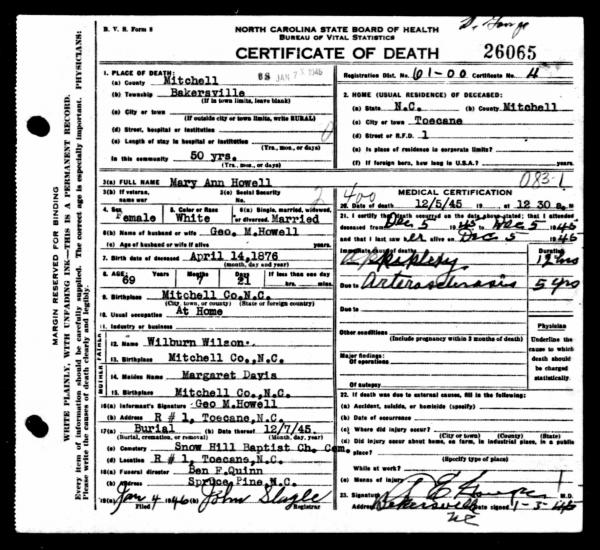 D. Gouge
B. V. S. Form 8
NORTH CAROLINA STATE BOARD OF HEALTH
BUREAU OF VITAL STATISTICS
CERTIFICATE OF DEATH
26065
Registration Dist. No. 61-00 Certificate No. 4
MARGIN RESERVED FOR BINDING
WRITE PLAINLY, WITH UNFADING INK—THIS IS A PERMANENT RECORD.
Every item of information should be carefully supplied. The correct age is especially important. PHYSICIANS:
Please write the causes of death clearly and legibly.
1. PLACE OF DEATH:
(a) County Mitchell
JAN 7 1946
(b) Township Bakersville
(If in town limits, leave blank)
(c) City or town
(If outside city or town limits, write RURAL)
(d) Street, hospital or institution
(e) Length of stay in hospital or institution
(Yrs., mos., or days)
In this community 50 yrs.
(Yrs., mos., or days)
2. HOME (USUAL RESIDENCE) OF DECEASED:
(a) State N.C. (b) County Mitchell
(c) City or town Toecane
(d) Street or R.F.D. 1
(e) Is place of residence in corporate limits?
(f) If foreign born, how long in U.S.A.?
083-1
3(a) FULL NAME Mary Ann Howell
3(b) If veteran, name war
3(c) Social Security No.
2
4. Sex Female
5. Color or Race White
6(a) Single, married, widowed, or divorced Married
6(b) Name of husband or wife Geo. M.Howell
6(c) Age of husband or wife if alive years
7. Birth date of deceased April 14,1876
(Month, day and year)
8. AGE: Years 69 Months 7 Days 21 If less than one day hrs. min.
9. Birthplace Mitchell Co.N.C.
(City, town, or county) (State or foreign country)
10. Usual occupation At Home
11. Industry or business
FATHER
12. Name Wilburn Wilson.
13. Birthplace Mitchell Co.,N.C.
MOTHER
14. Maiden Name Margaret Davis
15. Birthplace Mitchell Co.,N.C.
16(a) Informant's Signature Geo M.Howell
(b) Address R # 1, Toecane,N.C.
17(a) Burial (b) Date thereof 12/7/45.
(Burial, cremation, or removal) (Month, day, year)
(c) Cemetery Snow Hill Baptist Ch. Cem.
(d) Location R # 1, Toecane,N.C.
18(a) Funeral director Ben F.Quinn
(b) Address Spruce Pine,N.C.
19(a) Jan 4 1946 (b) John Slagle
Filed Registrar
400
MEDICAL CERTIFICATION
20. Date of death 12/5/45 19 at 12 30 a. m.
21. I certify that death occurred on the date above stated; that I attended
deceased from Dec 5 1945 to Dec 5 1945
and that I last saw alive on Dec 5 1945
Immediate cause of death
Duration
Apoplexy 12 hrs
Due to Arterosclerosis 5 yrs
Due to
Other conditions
(Include pregnancy within 3 months of death)
Major findings:
Of operations
Of autopsy
Physician
Underline the cause to which death should be charged statistically.
22. If death was due to external causes, fill in the following:
(a) Accident, suicide, or homicide (specify)
(b) Date of occurrence
(c) Where did injury occur?
(City or town) (County) (State)
(d) Did injury occur about home, on farm, in industrial place, in a public place?
(Specify type of place)
While at work?
(e) Means of injury
23. Signature D E Gouge M.D.
Address Bakersville NC Date signed 1-3-46